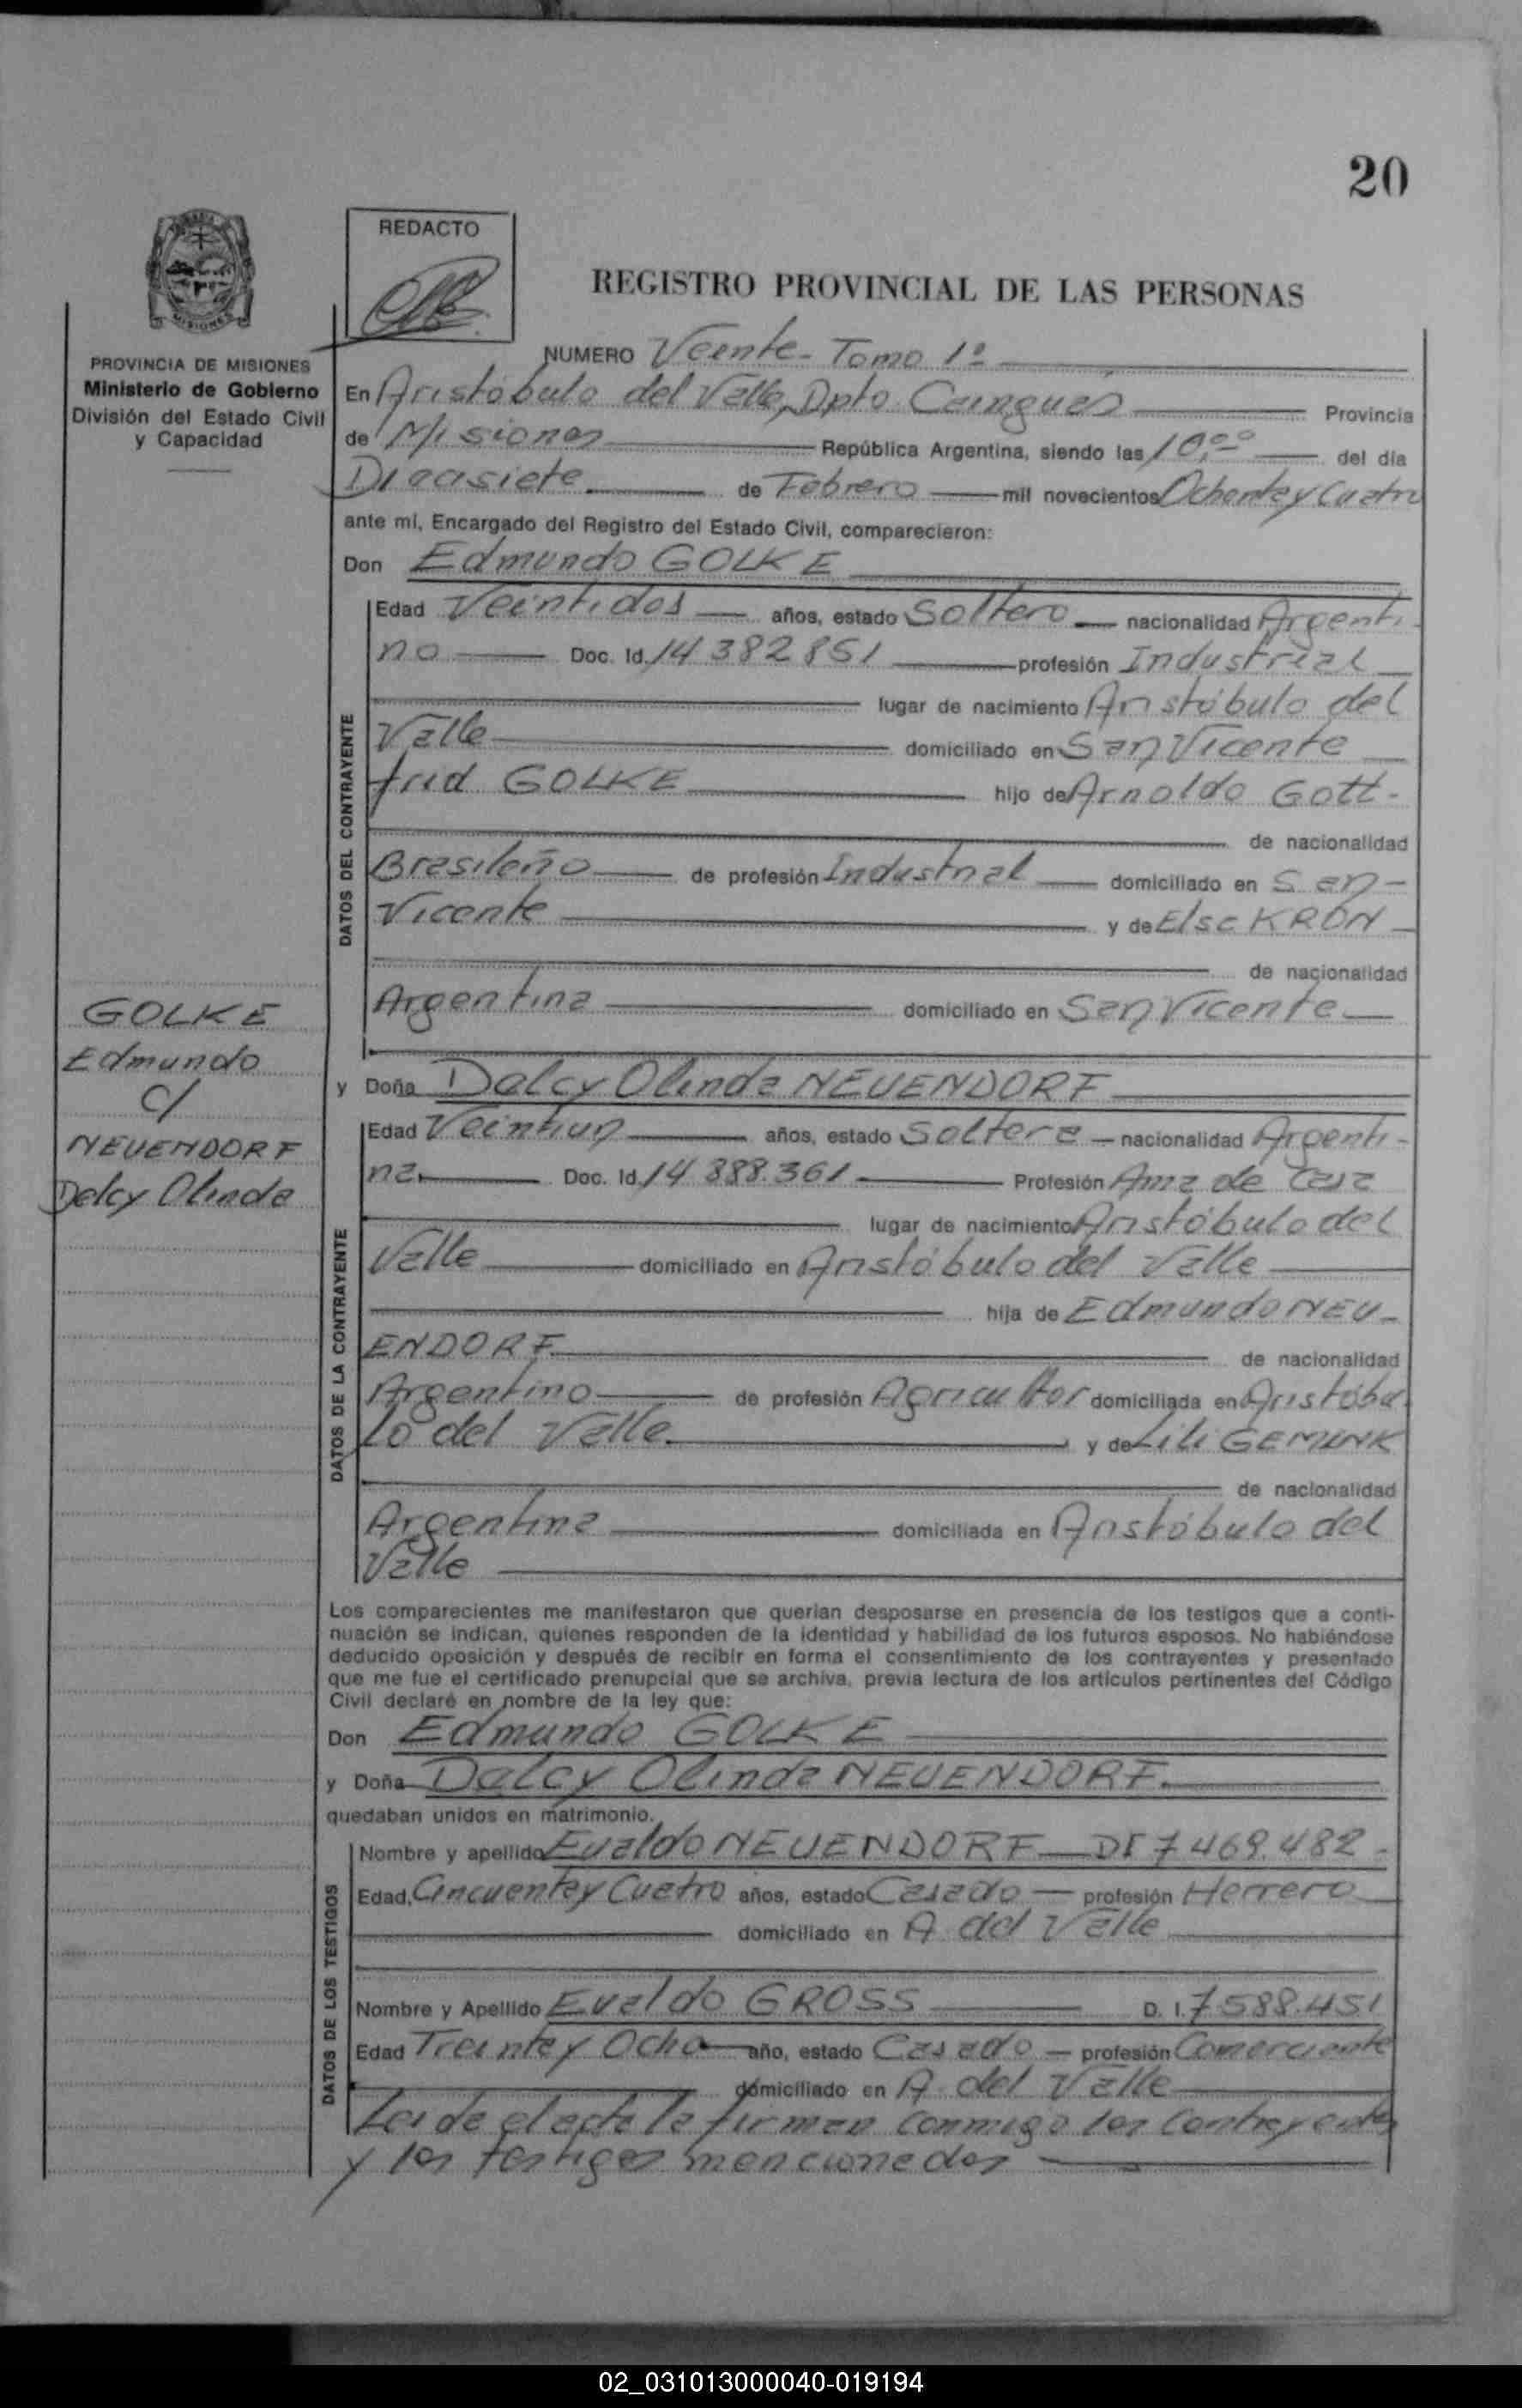 20
REDACTO
REGISTRO PROVINCIAL DE LAS PERSONAS
MISIONES
PROVINCIA DE MISIONES
Ministerio de Gobierno
División del Estado Civil
y Capacidad
NUMERO Veinte - Tomo 1º
En Aristóbulo del Valle, Dpto. Cainguás Provincia
de Misiones República Argentina, siendo las 10,00 del día
Diecisiete de Febrero mil novecientos Ochenta y Cuatro
ante mí, Encargado del Registro del Estado Civil, comparecieron:
Don Edmundo GOLKE
DATOS DEL CONTRAYENTE
Edad Veintidos años, estado Soltero nacionalidad Argenti-
no Doc. Id. 14 382 851 profesión Industrial
lugar de nacimiento Aristóbulo del
Valle domiciliado en San Vicente
frid GOLKE hijo de Arnoldo Gott-
de nacionalidad
Brasileño de profesión Industrial domiciliado en San-
Vicente y de Else KRON
de nacionalidad
Argentina domiciliado en San Vicente
GOLKE
Edmundo
c/
NEUENDORF
Delcy Olinda
y Doña Delcy Olinda NEUENDORF
DATOS DE LA CONTRAYENTE
Edad Veintiun años, estado Soltera nacionalidad Argenti-
na Doc. Id. 14.888.361 Profesión Ama de Casa
lugar de nacimiento Aristóbulo del
Valle domiciliado en Aristóbulo del Valle
hija de Edmundo NEU-
ENDORF de nacionalidad
Argentino de profesión Agricultor domiciliada en Aristóbu-
lo del Valle y de Lili GEMUNK
de nacionalidad
Argentina domiciliada en Aristóbulo del
Valle
Los comparecientes me manifestaron que querían desposarse en presencia de los testigos que a conti-
nuación se indican, quienes responden de la identidad y habilidad de los futuros esposos. No habiéndose
deducido oposición y después de recibir en forma el consentimiento de los contrayentes y presentado
que me fue el certificado prenupcial que se archiva, previa lectura de los artículos pertinentes del Código
Civil declaré en nombre de la ley que:
Don Edmundo GOLKE
y Doña Delcy Olinda NEUENDORF
quedaban unidos en matrimonio.
DATOS DE LOS TESTIGOS
Nombre y apellido Evaldo NEUENDORF DI 7 469.482
Edad, Cincuenta y Cuatro años, estado Casado profesión Herrero
domiciliado en A. del Valle
Nombre y Apellido Evaldo GROSS D. I. 7 588.451
Edad Treinta y Ocho año, estado Casado profesión Comerciante
domiciliado en A. del Valle
Leida el acta la firman conmigo los contrayentes
y los testigos mencionados
02_031013000040-019194